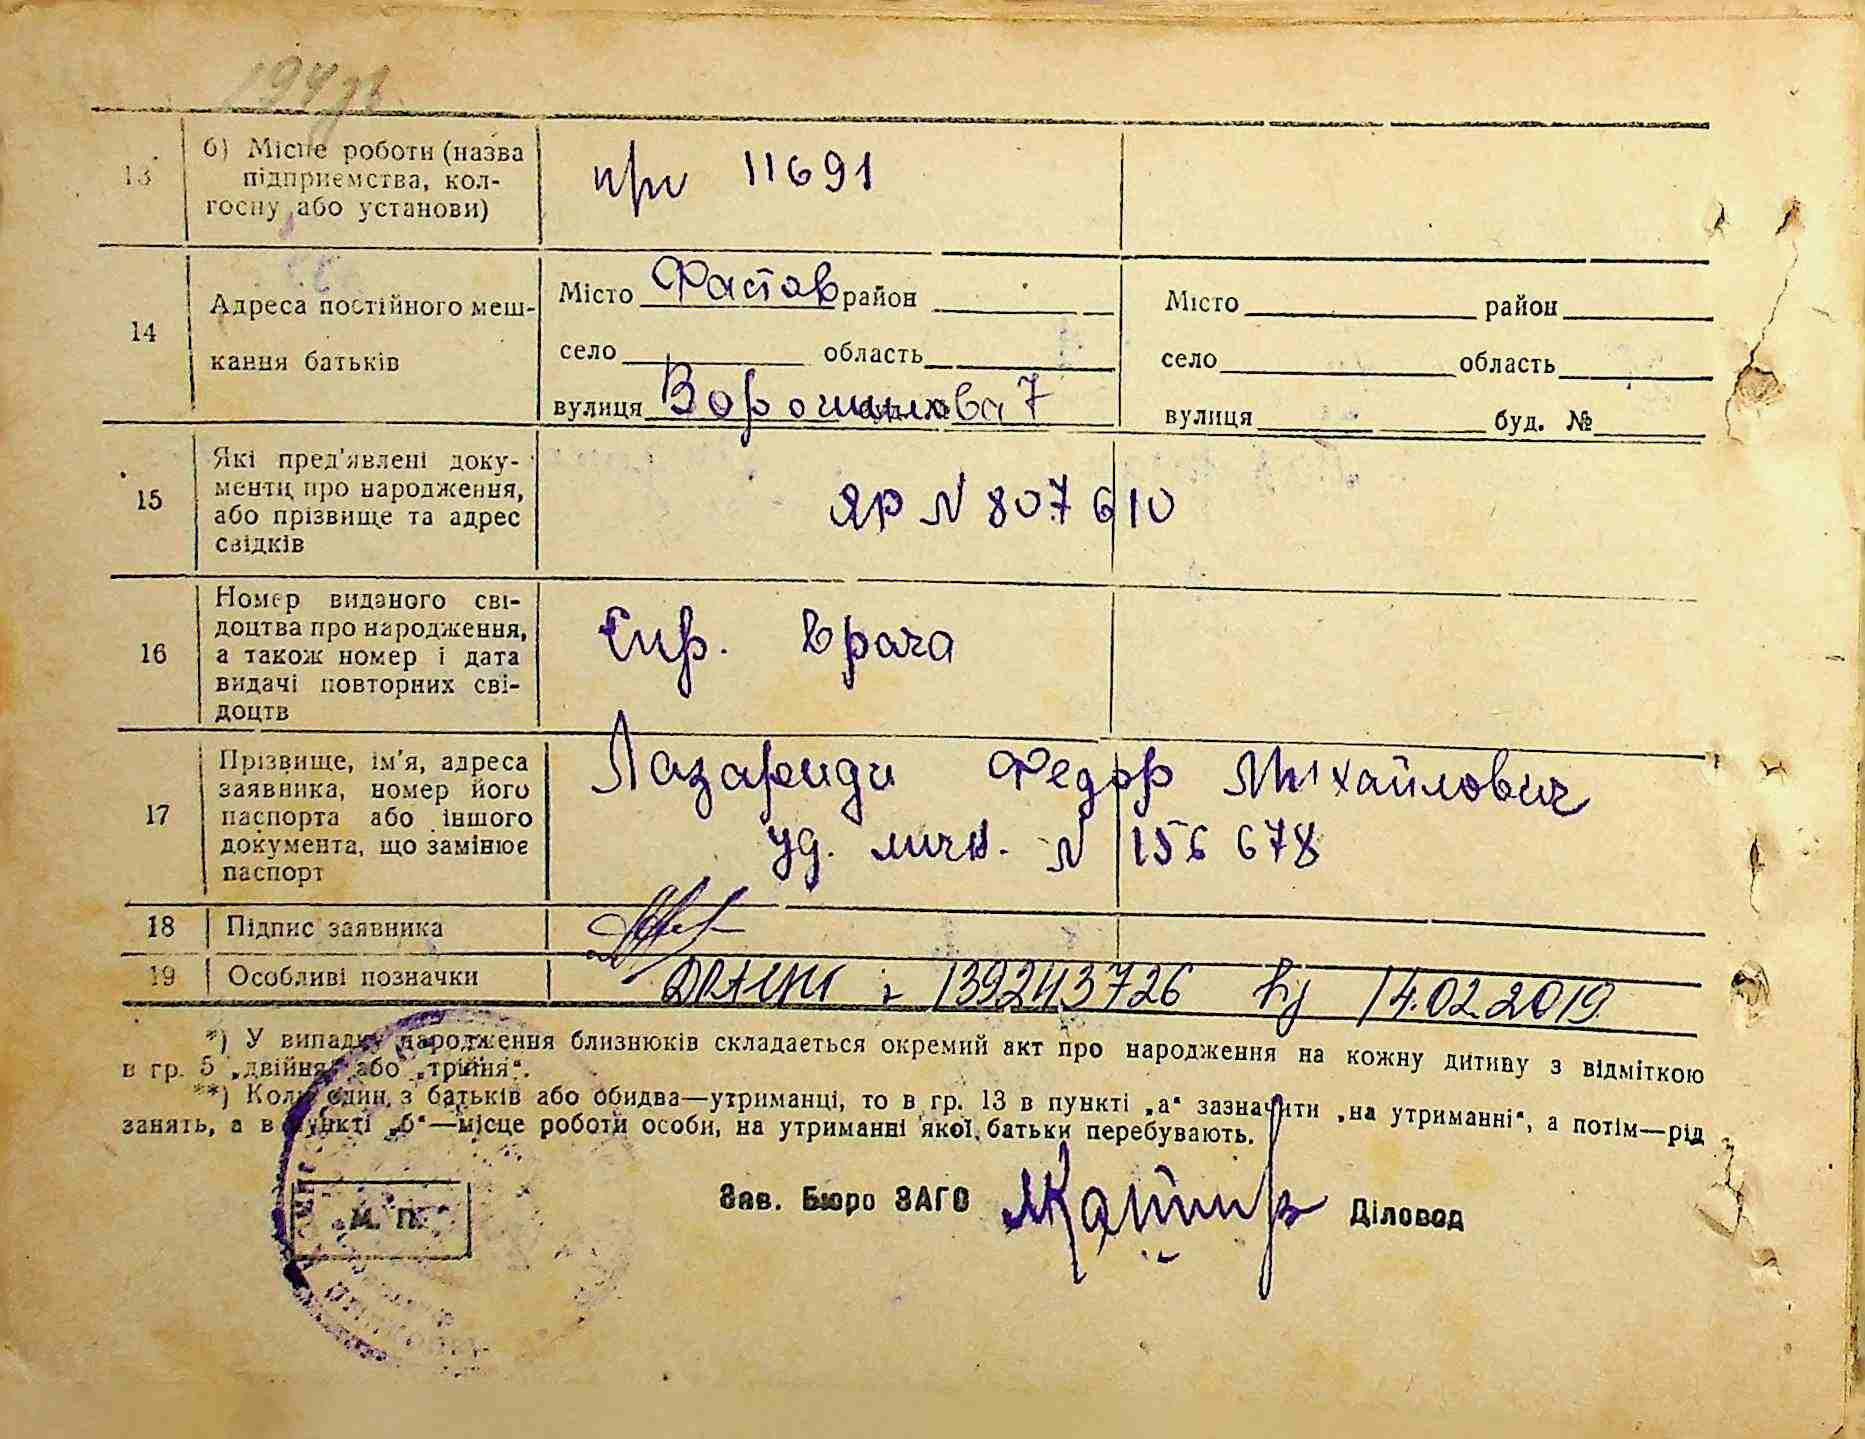 194
13 б) Місце роботи (назва
підприємства, кол-
госпу або установи)
при 11691
14 Адреса постійного меш-
кання батьків
Місто Фастов район
село область
вулиця Ворошилова 7
Місто район
село область
вулиця буд. №
15 Які пред'явлені доку-
менти про народження,
або прізвище та адрес
свідків
ЯР N 807610
16 Номер виданого сві-
доцтва про народження,
а також номер і дата
видачі повторних сві-
доцтв
Спр. врача
17 Прізвище, ім'я, адреса
заявника, номер його
паспорта або іншого
документа, що замінює
паспорт
Лазариди Федор Михайлович
уд. личн. N 156678
18 Підпис заявника
19 Особливі позначки
ДРАЦС : 139243726 від 14.02.2019
*) У випадку народження близнюків складається окремий акт про народження на кожну дитину з відміткою
в гр. 5 „двійня" або „трійня".
**) Коли один з батьків або обидва—утриманці, то в гр. 13 в пункті „а" зазначити „на утриманні", а потім—рід
занять, а в пункті „б"—місце роботи особи, на утриманні якої батьки перебувають.
Зав. Бюро ЗАГС Діловод
М. П.